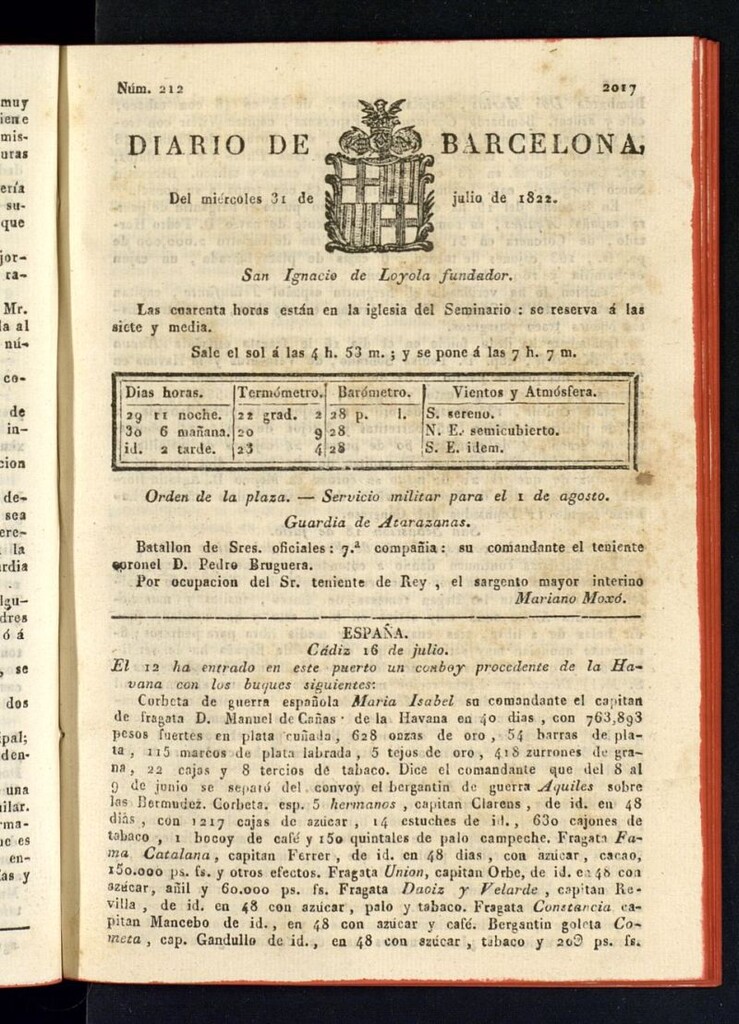 muy
mis-
uras
ería
su-
que
jor-
ra-
Mr.
la al
nú-
co-
de
in-
cion
de-
sea
la
rdia
lgu-
dres
ó á
, se
dos
ipal;
den-
una
ilar.
ma-
en-
as y
Núm. 212 2017
DIARIO DE BARCELONA,
Del miércoles 31 de julio de 1822.
San Ignacio de Loyola fundador.
Las cuarenta horas están en la iglesia del Seminario : se reserva á las
siete y media.
Sale el sol á las 4 h. 53 m. ; y se pone á las 7 h. 7 m.
Dias horas. Termómetro. Barómetro. Vientos y Atmósfera.
29 11 noche. 22 grad. 2 28 p. l. S. sereno.
30 6 mañana. 20 9 28 N. E. semicubierto.
id. 2 tarde. 23 4 28 S. E. idem.
Orden de la plaza. — Servicio militar para el 1 de agosto.
Guardia de Atarazanas.
Batallon de Sres. oficiales : 7.ª compañia : su comandante el teniente
coronel D. Pedro Bruguera.
Por ocupacion del Sr. teniente de Rey , el sargento mayor interino
Mariano Moxó.
ESPAÑA.
Cádiz 16 de julio.
El 12 ha entrado en este puerto un conboy procedente de la Ha-
vana con los buques siguientes:
Corbeta de guerra española Maria Isabel su comandante el capitan
de fragata D. Manuel de Cañas de la Havana en 40 dias , con 763,893
pesos fuertes en plata cuñada , 628 onzas de oro , 54 barras de pla-
ta , 115 marcos de plata labrada , 5 tejos de oro , 418 zurrones de gra-
na , 22 cajas y 8 tercios de tabaco. Dice el comandante que del 8 al
9 de junio se separó del convoy el bergantin de guerra Aquiles sobre
las Bermudez. Corbeta. esp. 5 hermanos , capitan Clarens , de id. en 48
dias , con 1217 cajas de azúcar , 14 estuches de id., 630 cajones de
tabaco , 1 bocoy de café y 150 quintales de palo campeche. Fragata Fa-
ma Catalana , capitan Ferrer , de id. en 48 dias , con azúcar , cacao,
150.000 ps. fs. y otros efectos. Fragata Union, capitan Orbe, de id. en 48 con
azúcar, añil y 60.000 ps. fs. Fragata Daoiz y Velarde , capitan Re-
villa , de id. en 48 con azúcar , palo y tabaco. Fragata Constancia ca-
pitan Mancebo de id., en 48 con azúcar y café. Bergantin goleta Co-
meta , cap. Gandullo de id., en 48 con azúcar , tabaco y ps. fs.